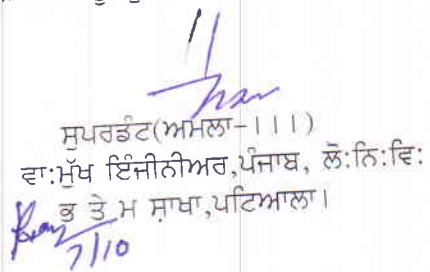 ਸੁਪਰਡੰਟ(ਅਮਲਾ-।।।)
ਵਾ:ਮੁੱਖ ਇੰਜੀਨੀਅਰ,ਪੰਜਾਬ, ਲੋ:ਨਿ:ਵਿ:
ਭ ਤੇ ਮ ਸ਼ਾਖਾ,ਪਟਿਆਲਾ।
7/10